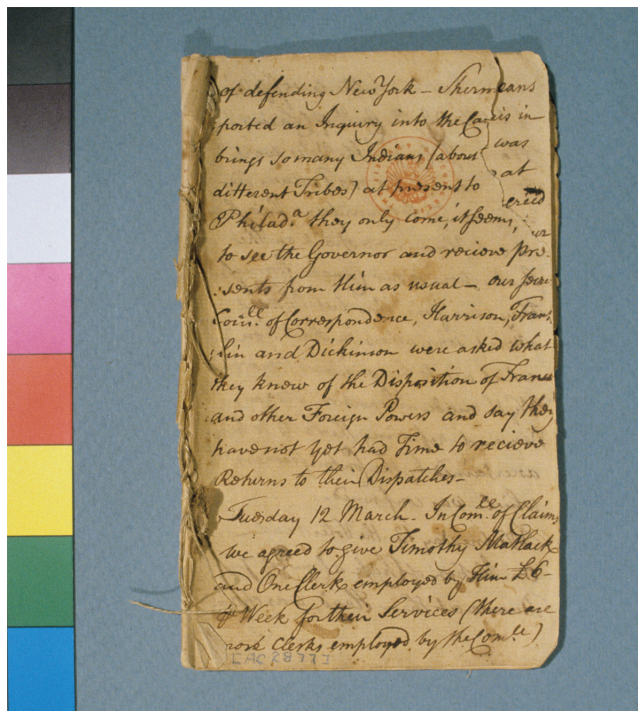 of defending New York – Sherman
ported an Inquiry into the in
brings so many Indians (about was
different Tribes) at present to at
Philad.a they only come, it seems,
to see the Governor and recieve pre-
:sents from Him as usual – our
Com.ee of Correspondence, Harrison, Fran
:lin and Dickinson were asked what
they know of the Disposition of France
and other Foreign Powers and say they
have not yet had Time to recieve
Returns to their Dispatches –
Tuesday 12 March. In Com.ee of Claims
we agreed to give Timothy Matlack
and One Clerk employed by Him £6-
⅌ Week for their Services (there are
more Clerks employed by the Com.ee)
EAC28777